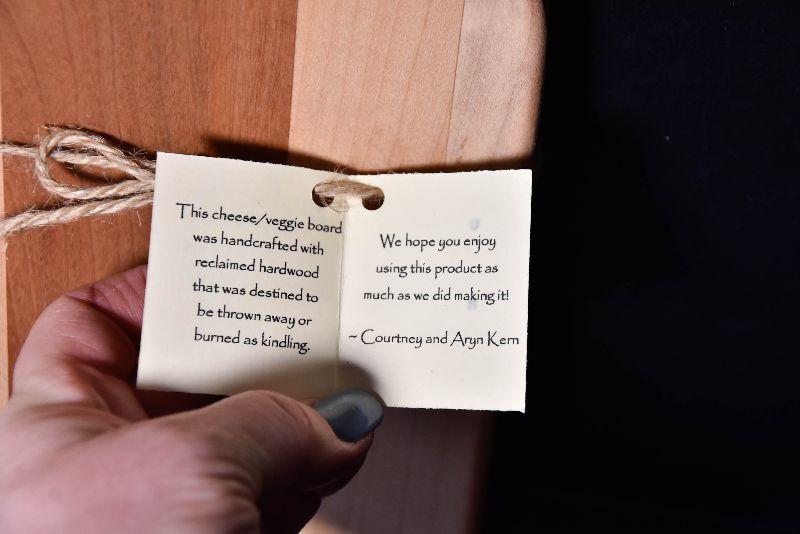 This cheese/veggie board
was handcrafted with
reclaimed hardwood
that was destined to
be thrown away or
burned as kindling.
We hope you enjoy
using this product as
much as we did making it!
~ Courtney and Aryn Kern